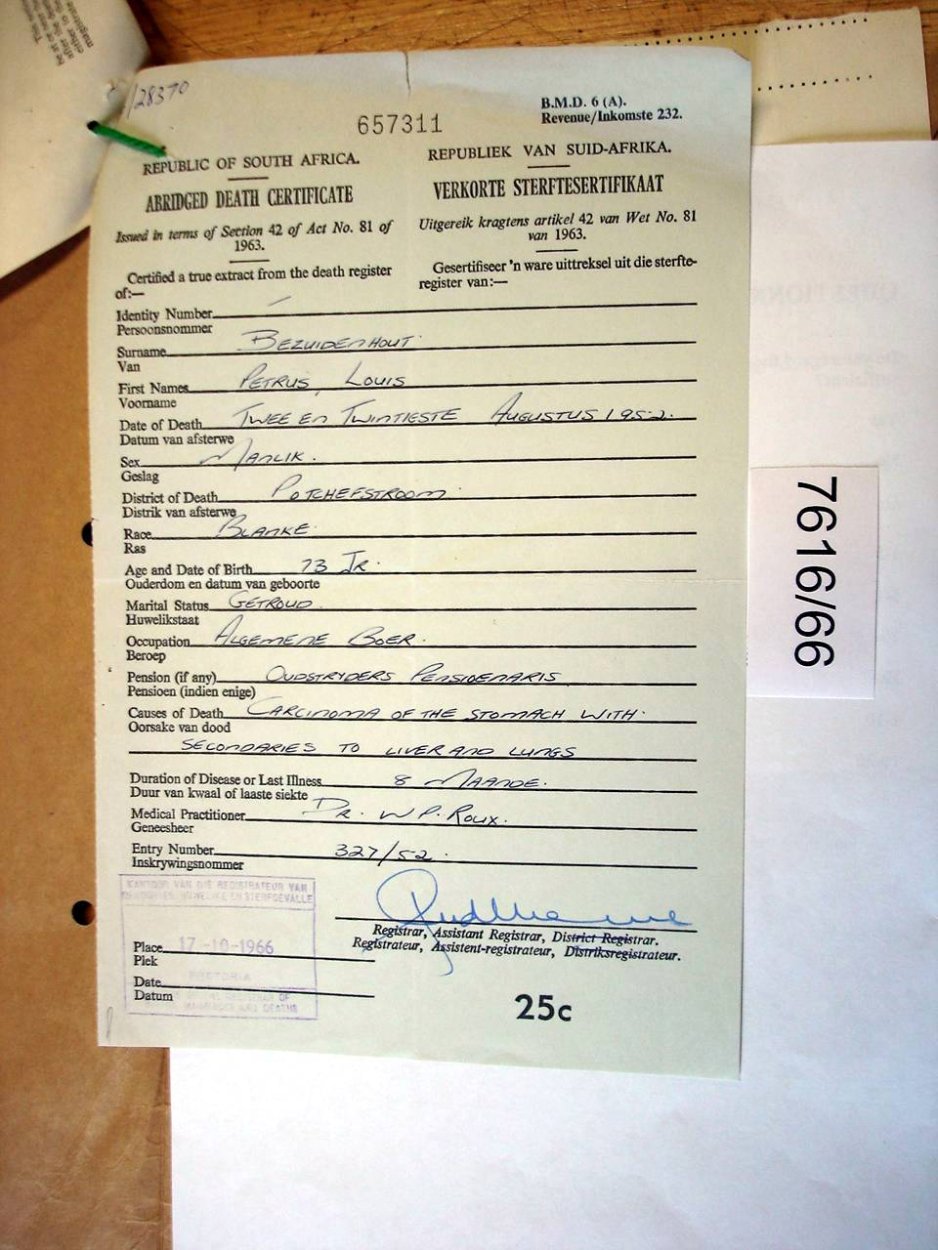 /28370
657311
B.M.D. 6 (A).
Revenue/Inkomste 232.
REPUBLIC OF SOUTH AFRICA.
ABRIDGED DEATH CERTIFICATE
Issued in terms of Section 42 of Act No. 81 of
1963.
Certified a true extract from the death register
of:—
REPUBLIEK VAN SUID-AFRIKA.
VERKORTE STERFTESERTIFIKAAT
Uitgereik kragtens artikel 42 van Wet No. 81
van 1963.
Gesertifiseer 'n ware uittreksel uit die sterfte-
register van:—
Identity Number
Persoonsnommer
Surname BEZUIDENHOUT
Van
First Names PETRUS, LOUIS
Voorname
Date of Death TWEE EN TWINTIGSTE AUGUSTUS 1952.
Datum van afsterwe
Sex MANLIK.
Geslag
District of Death POTCHEFSTROOM.
Distrik van afsterwe
Race BLANKE.
Ras
Age and Date of Birth 73 JR.
Ouderdom en datum van geboorte
Marital Status GETROUD.
Huwelikstaat
Occupation ALGEMENE BOER.
Beroep
Pension (if any) OUDSTRYDERS PENSIOENARIS
Pensioen (indien enige)
Causes of Death CARCINOMA OF THE STOMACH WITH
Oorsake van dood
SECONDARIES TO LIVER AND LUNGS
Duration of Disease or Last Illness 8 MAANDE.
Duur van kwaal of laaste siekte
Medical Practitioner DR. W.P. ROUX.
Geneesheer
Entry Number 327/52.
Inskrywingsnommer
KANTOOR VAN DIE REGISTRATEUR VAN
GEBOORTES, HUWELIKE EN STERFGEVALLE
Registrar, Assistant Registrar, District Registrar.
Registrateur, Assistent-registrateur, Distriksregistrateur.
Place 17-10-1966
Plek
PRETORIA
Date
Datum
25c
7616/66